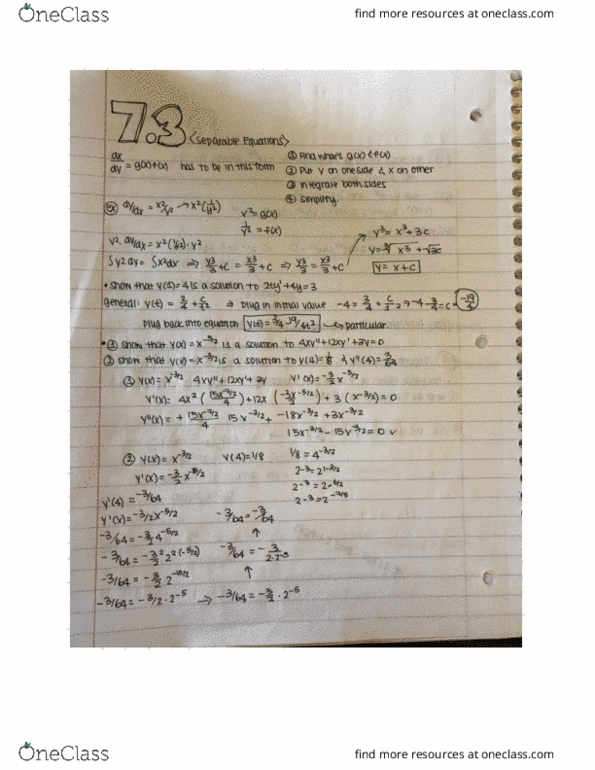 OneClass
find more resources at oneclass.com
7.3 <Separable Equations>
dx/dy = g(x)f(x) has to be in this form
① Find what's g(x) & f(x)
② Put y on one side & x on other
③ integrate both sides
④ simplify.
ex dy/dx = x²/y² → x²(1/y²)
x² = g(x)
1/y² = f(x)
y² · dy/dx = x²(1/y²) · y²
∫y²dy = ∫x²dx ⇒ y³/3 + C = x³/3 + C ⇒ y³/3 = x³/3 + C
y³ = x³ + 3c
y = ∛x³ + √3c
y = x + c
• show that y(1) = 4 is a solution to 2ty' + 4y = 3
general: y(t) = 3/4 + C/t² ⇒ plug in initial value -4 = 3/4 + C/1² ⇒ -4 - 3/4 = C = -19/4
plug back into equation y(t) = 3/4 - 19/4t² → particular.
• ① show that y(x) = x^-3/2 is a solution to 4xy'' + 12xy' + 3y = 0
② show that y(x) = x^-3/2 is a solution to y(4) = 1/8 & y''(4) = 3/64
① y(x) = x^-3/2 4xy'' + 12xy' + 3y y'(x) = -3/2 x^-5/2
y'(x) = 4x² (15x^-7/2 / 4) + 12x (-3/2 x^-5/2) + 3 (x^-3/2) = 0
y''(x) = + 15x^-7/2 / 4 15x^-3/2 + -18x^-3/2 + 3x^-3/2
15x^-3/2 - 15x^-3/2 = 0 ✓
② y(x) = x^-3/2 y(4) = 1/8
1/8 = 4^-3/2
y'(x) = -3/2 x^-5/2
y'(4) = -3/64
y'(x) = -3/2 x^-5/2 -3/64 = -3/64
-3/64 = -3/2 4^-5/2 ↑
-3/64 = -3/2 2^2(-5/2) -3/64 = - 3/2·2^-5
-3/64 = -3/2 2^-10/2 ↑
-3/64 = -3/2 · 2^-5 → -3/64 = -3/2 · 2^-5
OneClass
find more resources at oneclass.com